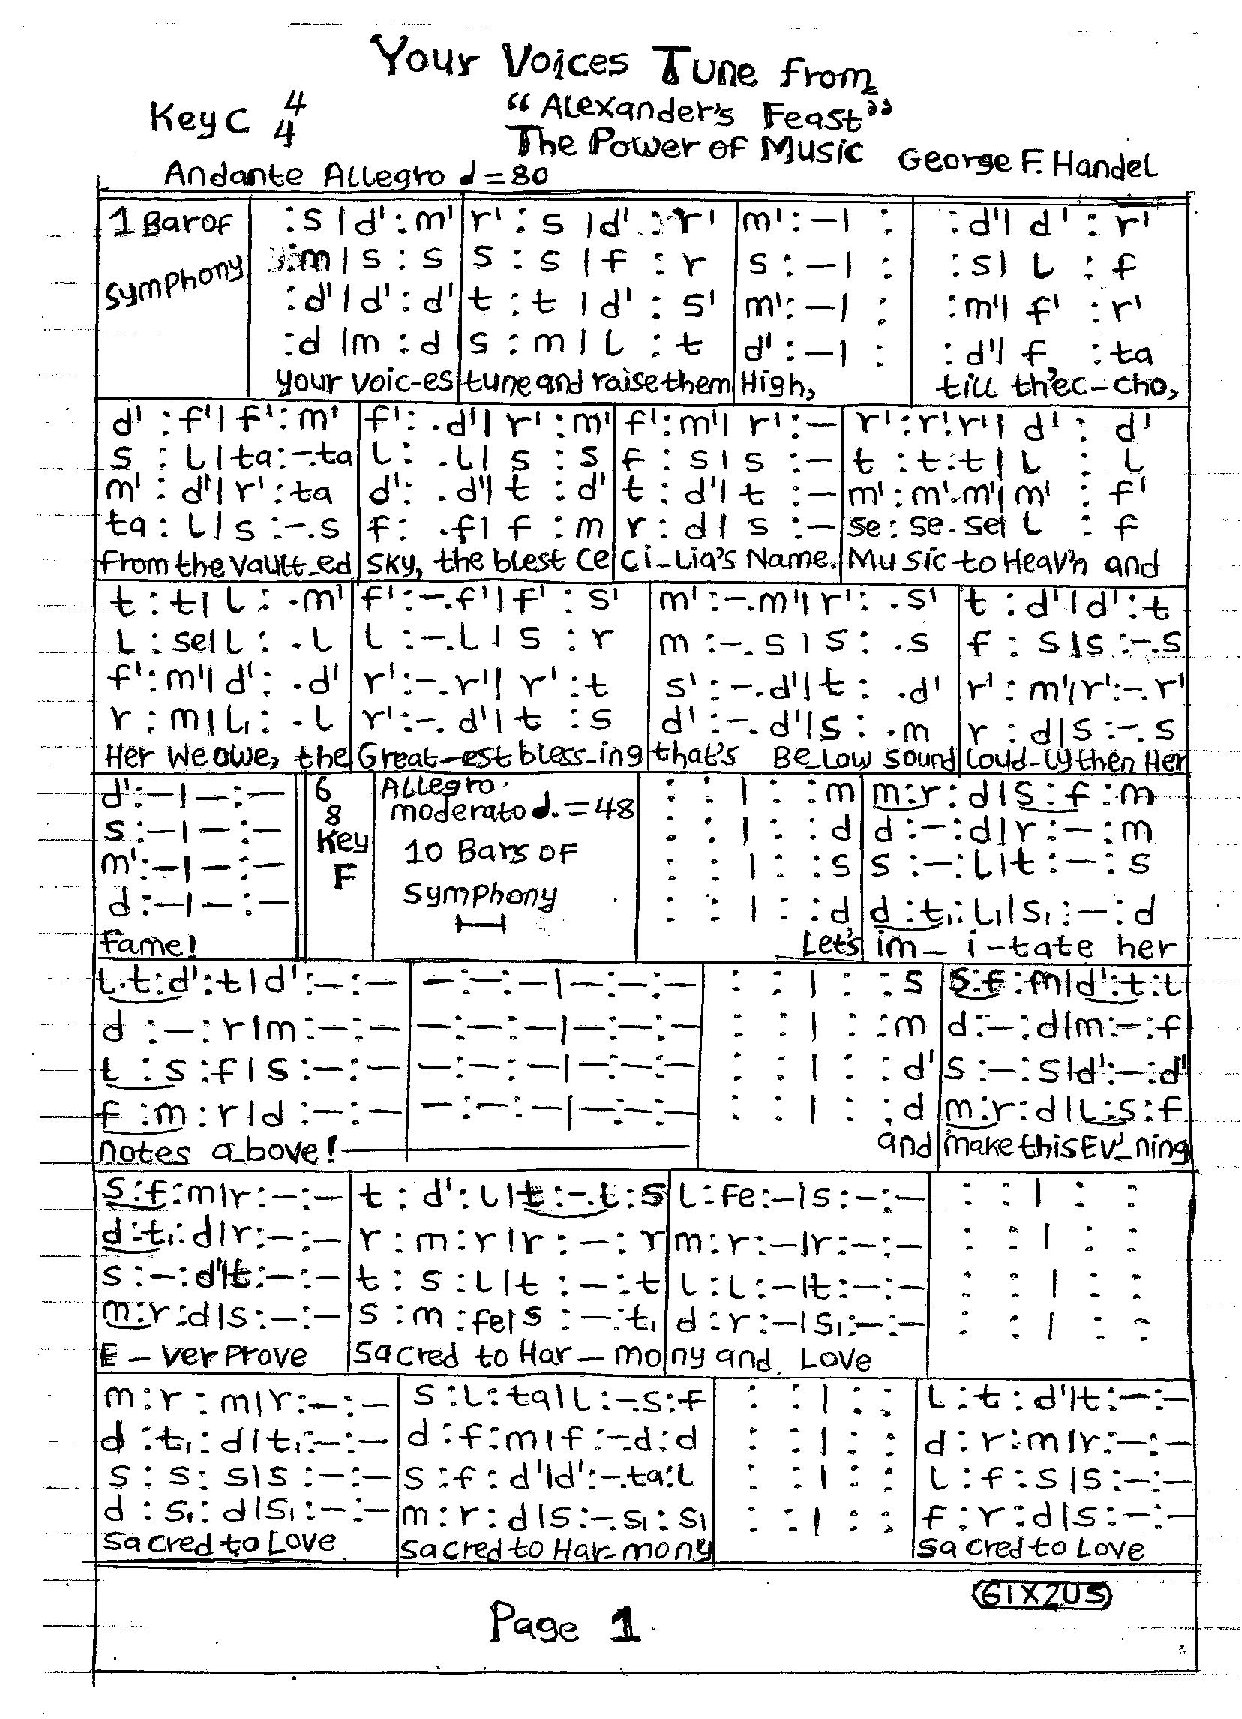 Your Voices Tune from
Key C 4/4 "Alexander's Feast"
The Power of Music
George F. Handel
Andante Allegro d = 80
1 Bar of :s | d' : m' | r' : s | d' : r' | m' : – | : | : d' | d' : r'
Symphony :m | s : s | s : s | f : r | s : – | : | : s | L : f
:d' | d' : d' | t : t | d' : s' | m' : – | : | : m' | f' : r'
:d | m : d | s : m | L : t | d' : – | : | : d' | f : ta
Your Voic-es tune and raise them High, till th'ec-cho,
d' : f' | f' : m' | f' : .d' | r' : m' | f' : m' | r' : – | r' : r'.r' | d' : d'
s : L | ta : –.ta | L : .L | s : s | f : s | s : – | t : t.t | L : L
m' : d' | r' : ta | d' : .d' | t : d' | t : d' | t : – | m' : m'.m' | m' : f'
ta : L | s : –.s | f : .f | f : m | r : d | s : – | se : se.se | L : f
from the Vault-ed Sky, the blest Ce Ci-Lia's Name. Mu sic to Heav'n and
t : t | L : .m' | f' : –.f' | f' : s' | m' : –.m' | r' : .s' | t : d' | d' : t
L : se | L : .L | L : –.L | s : r | m : –.s | s : .s | f : s | s : –.s
f' : m' | d' : .d' | r' : –.r' | r' : t | s' : –.d' | t : .d' | r' : m' | r' : –.r'
r : m | L₁ : .L | r' : –.d' | t : s | d' : –.d' | s : .m | r : d | s : –.s
Her We owe, the Great-est bless-ing that's Be-Low sound Loud-ly then Her
d' : – | – : – | 6/8 Allegro moderato d. = 48 | : : | : : m | m : r : d | s : f : m
s : – | – : – | Key F 10 Bars of Symphony | : : | : : d | d : – : d | r : – : m
m' : – | – : – | : : | : : s | s : – : L | t : – : s
d : – | – : – | : : | : : d | d : t₁ : L₁ | s₁ : – : d
fame! Let's im- i-tate her
L.t : d' : t | d' : – : – | – : – : – | – : – : – | : : | : : s | s : f : m | d' : t : L
d : – : r | m : – : – | – : – : – | – : – : – | : : | : : m | d : – : d | m : – : f
L : s : f | s : – : – | – : – : – | – : – : – | : : | : : d' | s : – : s | d' : – : d'
f : m : r | d : – : – | – : – : – | – : – : – | : : | : : d | m : r : d | L : s : f
notes a-bove! and make this Ev'-ning
s : f : m | r : – : – | t : d' : L | t : –.L : s | L : fe : – | s : – : – | : : | : :
d : t₁ : d | r : – : – | r : m : r | r : – : r | m : r : – | r : – : – | : : | : :
s : – : d' | t : – : – | t : s : L | t : – : t | L : L : – | t : – : – | : : | : :
m : r : d | s : – : – | s : m : fe | s : – : t₁ | d : r : – | s₁ : – : – | : : | : :
E – ver Prove Sacred to Har – mo ny and Love
m : r : m | r : – : – | s : L : ta | L : –.s : f | : : | : : | L : t : d' | t : – : –
d : t₁ : d | t₁ : – : – | d : f : m | f : –.d : d | : : | : : | d : r : m | r : – : –
s : s : s | s : – : – | s : f : d' | d' : –.ta : L | : : | : : | L : f : s | s : – : –
d : s₁ : d | s₁ : – : – | m : r : d | s : –.s₁ : s₁ | : : | : : | f : r : d | s : – : –
Sacred to Love Sacred to Har-mony Sacred to Love
GIXZUS
Page 1